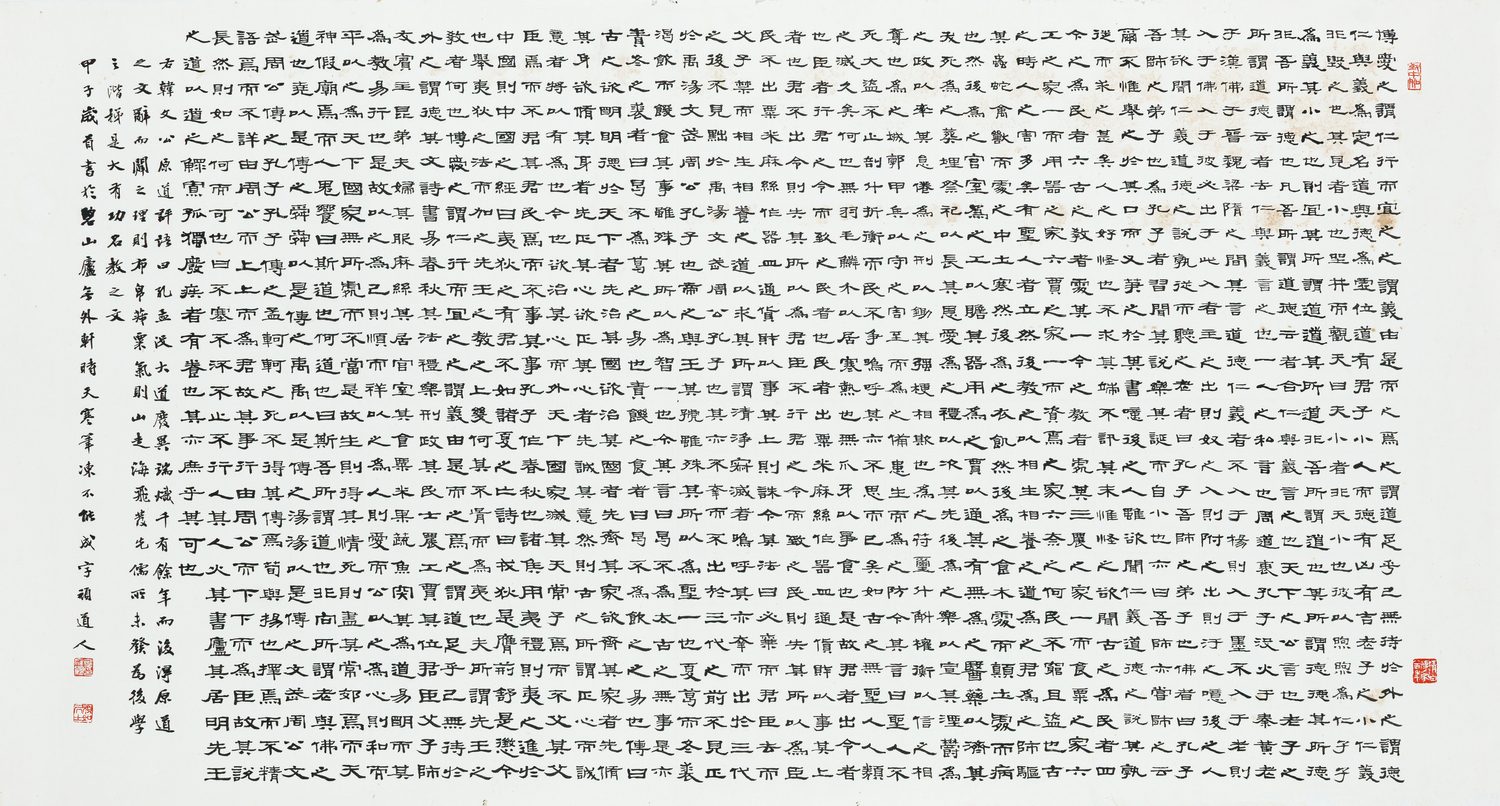 博愛之謂仁行而宜之之謂義由是而之焉之謂道足乎己無待於外之謂德
仁與義為定名道與德為虛位道有君子小人而德有凶有吉老子之小仁義
非毀之也其見者小也坐井而觀天曰天小者非天小也彼以煦煦為仁孑孑
為義其小之也則宜其所謂道道其所道非吾所謂道也其所謂德德其所德
非吾所謂德也凡吾所謂道德云者合仁與義言之也天下之公言也老子之
所謂道德云者去仁與義言之也一人之私言也周道衰孔子沒火于秦黃老
于漢佛于晉魏梁隋之間其言道德仁義者不入于楊則入于墨不入于老則
入于佛入于彼必出于此入者主之出則奴之入則附之出則汙之噫後之人
其欲聞仁義道德之說孰從而聽之老者曰孔子吾師之弟子也佛者曰孔子
吾師之弟子也為孔子者習聞其說樂其誕而自小也亦曰吾師亦嘗師之云
爾不惟舉之於其口而又筆之於其書噫後之人雖欲聞仁義道德之說其孰
從而求之甚矣人之好怪也不求其端不訊其末惟怪之欲聞古之為民者四
今之為民者六古之教者處其一今之教者處其三農之家一而食粟之家六
工之家一而用器之家六賈之家一而資焉之家六奈之何民不窮且盜也古
之時人之害多矣有聖人者立然後教之以相生相養之道為之君為之師驅
其蟲蛇禽獸而處之中土寒然後為之衣飢然後為之食木處而顛土處而病
也然後為之宮室為之工以贍其器用為之賈以通其有無為之醫藥以濟其
夭死為之葬埋祭祀以長其恩愛為之禮以次其先後為之樂以宣其湮鬱為
之政以率其怠倦為之刑以鋤其強梗相欺也為之符璽斗斛權衡以信之相
奪也為之城郭甲兵以守之害至而為之備患生而為之防今其言曰聖人不
死大盜不止剖斗折衡而民不爭嗚呼其亦不思而已矣如古之無聖人人類
之滅久矣何也無羽毛鱗介以居寒熱也無爪牙以爭食也是故君者出令者
也臣者行君之令而致之民者也民者出粟米麻絲作器皿通貨財以事其上
者也君不出令則失其所以為君臣不行君之令而致之民則失其所以為臣
民不出粟米麻絲作器皿通貨財以事其上則誅今其法曰必棄而君臣去而
父子禁而相生相養之道以求其所謂清淨寂滅者嗚呼其亦幸而出於三代
之後不見黜於禹湯文武周公孔子也其亦不幸而不出於三代之前不見正
於禹湯文武周公孔子也帝之與王其號雖殊其所以為聖一也夏葛而冬裘
渴飲而飢食其事雖殊其所以為智一也今其言曰曷不為太古之無事是亦
責冬之裘者曰曷不為葛之之易也責飢之食者曰曷不為飲之之易也傳曰
古之欲明明德於天下者先治其國欲治其國者先齊其家欲齊其家者先脩
其身欲脩其身者先正其心欲正其心者先誠其意然則古之所謂正心而誠
意者將以有為也今也欲治其心而外天下國家滅其天常子焉而不父其父
臣焉而不君其君民焉而不事其事孔子作春秋也諸侯用夷禮則夷之進於
中國則中國之經曰夷狄之有君不如諸夏之亡詩曰戎狄是膺荊舒是懲今
也舉夷狄之法而加之先王之教之上幾何其不胥而為夷也夫所謂先王之
教者何也博愛之謂仁行而宜之之謂義由是而之焉之謂道足乎己無待於
外之謂德其文詩書易春秋其法禮樂刑政其民士農工賈其位君臣父子師
友賓主昆弟夫婦其服麻絲其居宮室其食粟米果蔬魚肉其為道易明而其
為教易行也是故以之為己則順而祥以之為人則愛而公以之為心則和而
平以之為天下國家無所處而不當是故生則得其情死則盡其常郊焉而天
神假廟焉而人鬼饗曰斯道也何道也曰斯吾所謂道也非向所謂老與佛之
道也堯以是傳之舜舜以是傳之禹禹以是傳之湯湯以是傳之文武周公文
武周公傳之孔子孔子傳之孟軻軻之死不得其傳焉荀與揚也擇焉而不精
語焉而不詳由周公而上上而為君故其事行由周公而下下而為臣故其說
長然則如之何而可也曰不塞不流不止不行人其人火其書廬其居明先王
之道以道之鰥寡孤獨廢疾者有養也其亦庶乎其可也
右韓文公原道評語曰孔孟沒大道廢異端熾千有餘年而後得原道
之文辭而闢之理則布帛菽粟氣則山走海飛發先儒所未發為後學
之階梯是大有功名教之文
甲子歲首書於碧山廬無外軒時天寒筆凍不能成字頑道人